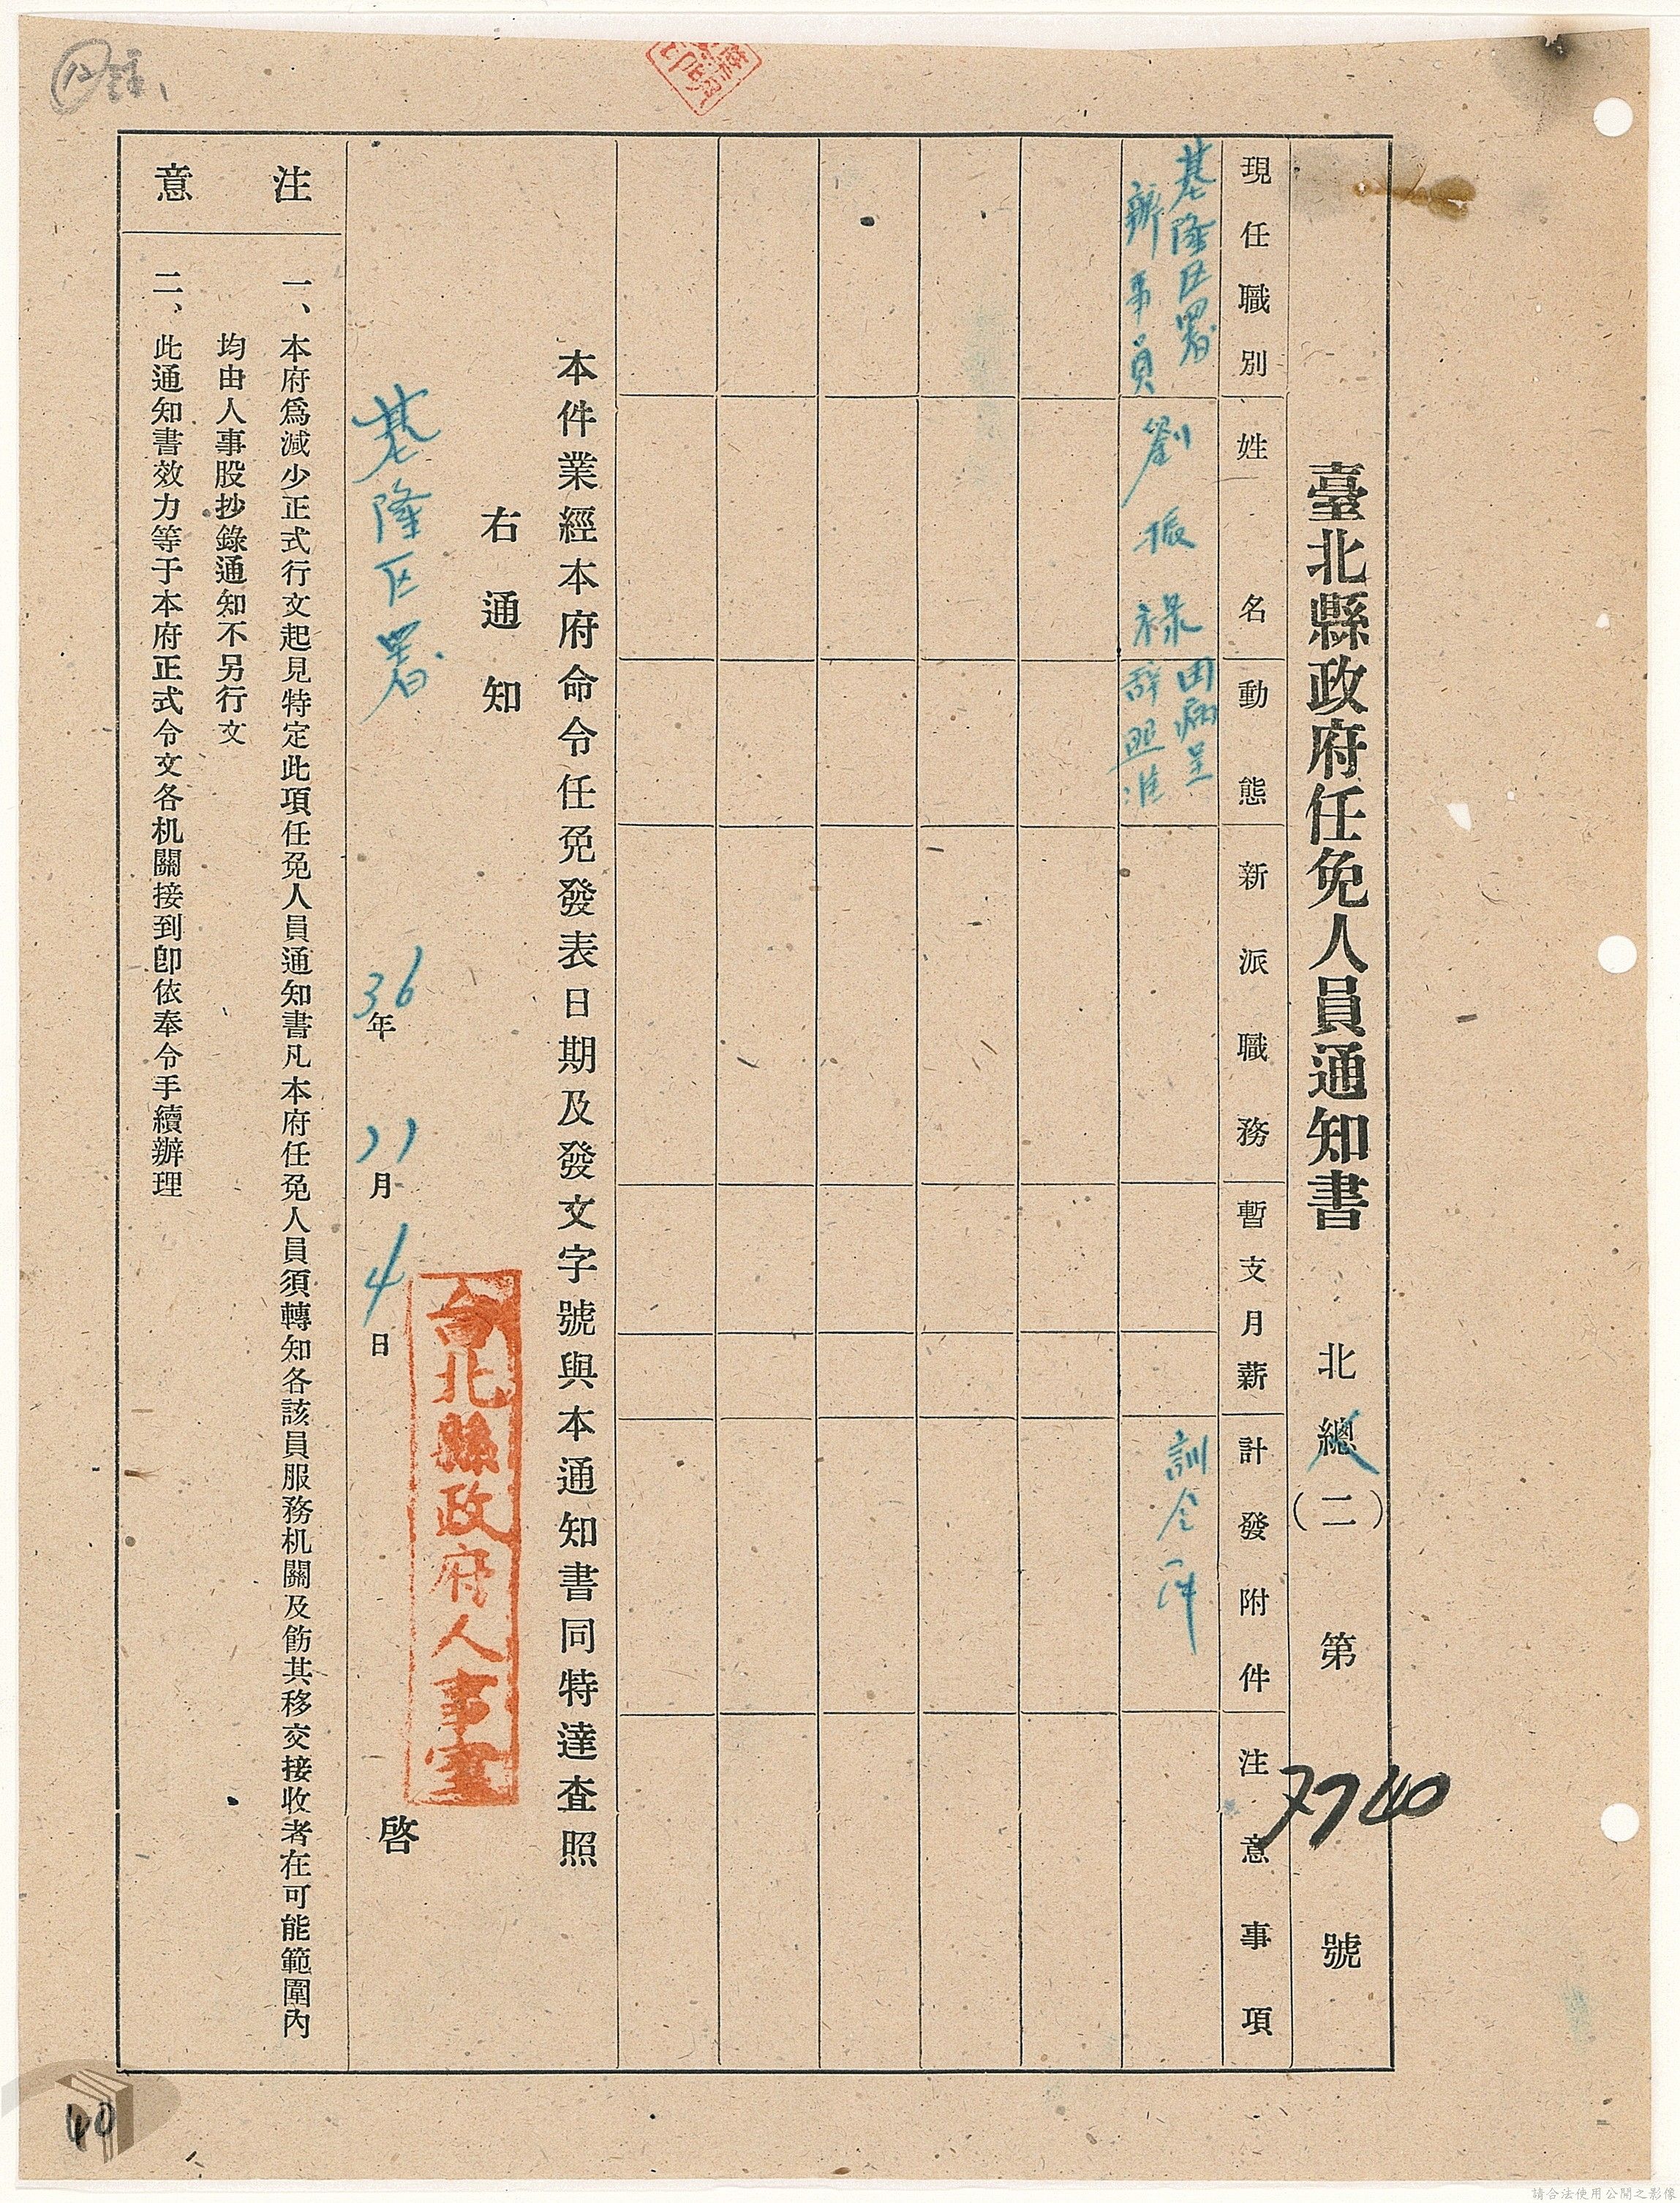 臺北縣政府任免人員通知書 北總(二) 第 7740 號
現任職別 姓名 動態 新派職務 暫支月薪 計發附件 注意事項
基隆区署
辦事員
劉振祿
因病呈
辞照准
訓令一件
本件業經本府命令任免發表日期及發文字號與本通知書同特達查照
右通知
台北縣政府人事室 啓
基隆区署
36年11月4日
注意
一、本府爲減少正式行文起見特定此項任免人員通知書凡本府任免人員須轉知各該員服務机關及飭其移交接收者在可能範圍內
均由人事股抄錄通知不另行文
二、此通知書效力等于本府正式令文各机關接到卽依奉令手續辦理
40
請合法使用公開之影像